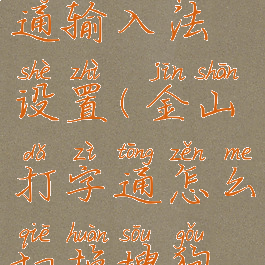 通输入法
shè zhì jīn shān
设置(金山
dǎ zì tōng zěn me
打字通怎么
qiē huàn sōu gǒu
切换搜狗